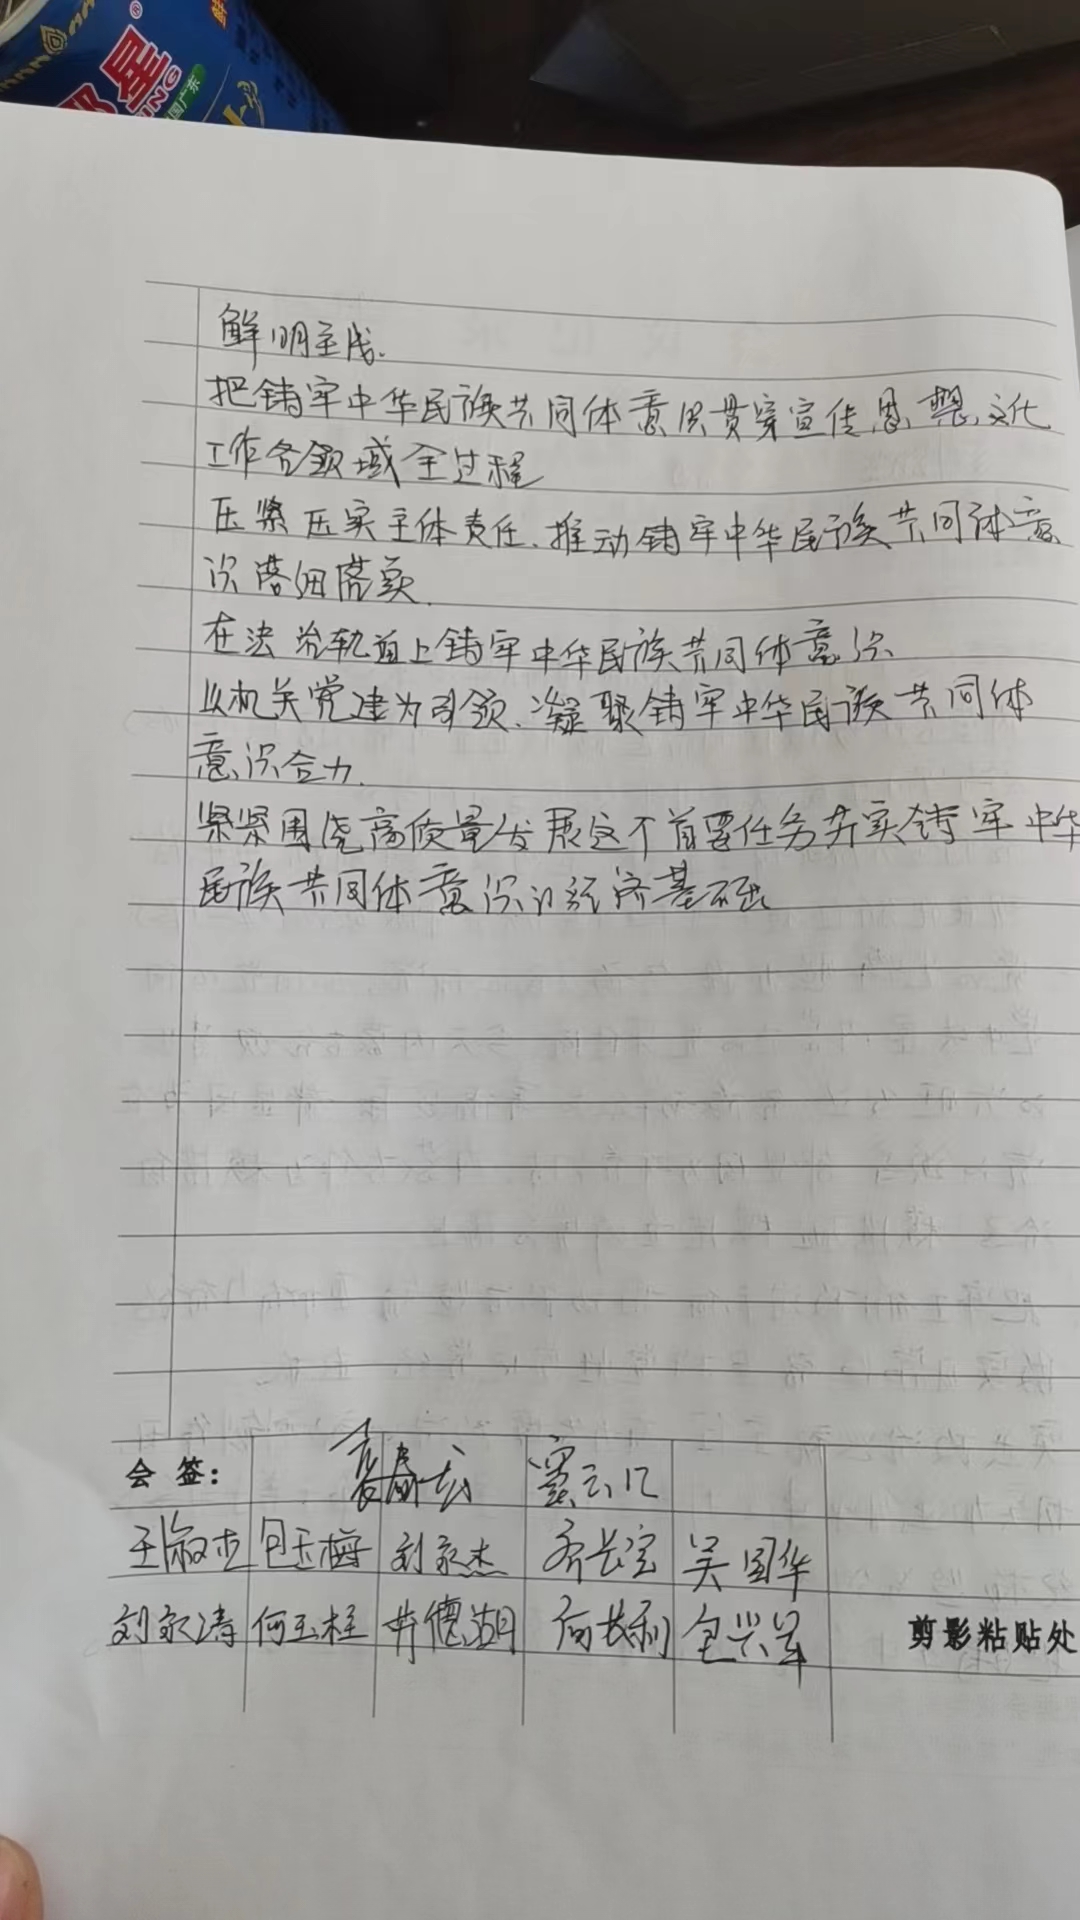 星
鲜明主线.
把铸牢中华民族共同体意识贯穿宣传思想文化
工作各领域全过程
压紧压实主体责任.推动铸牢中华民族共同体意
识落细落实.
在法治轨道上铸牢中华民族共同体意识
以机关党建为引领.凝聚铸牢中华民族共同体
意识合力.
紧紧围绕高质量发展这个首要任务夯实铸牢中华
民族共同体意识的经济基础
会 签: 
包玉梅 刘家杰 齐长宝 吴国华
刘家涛 何玉柱 井德湖 包兴军 剪影粘贴处